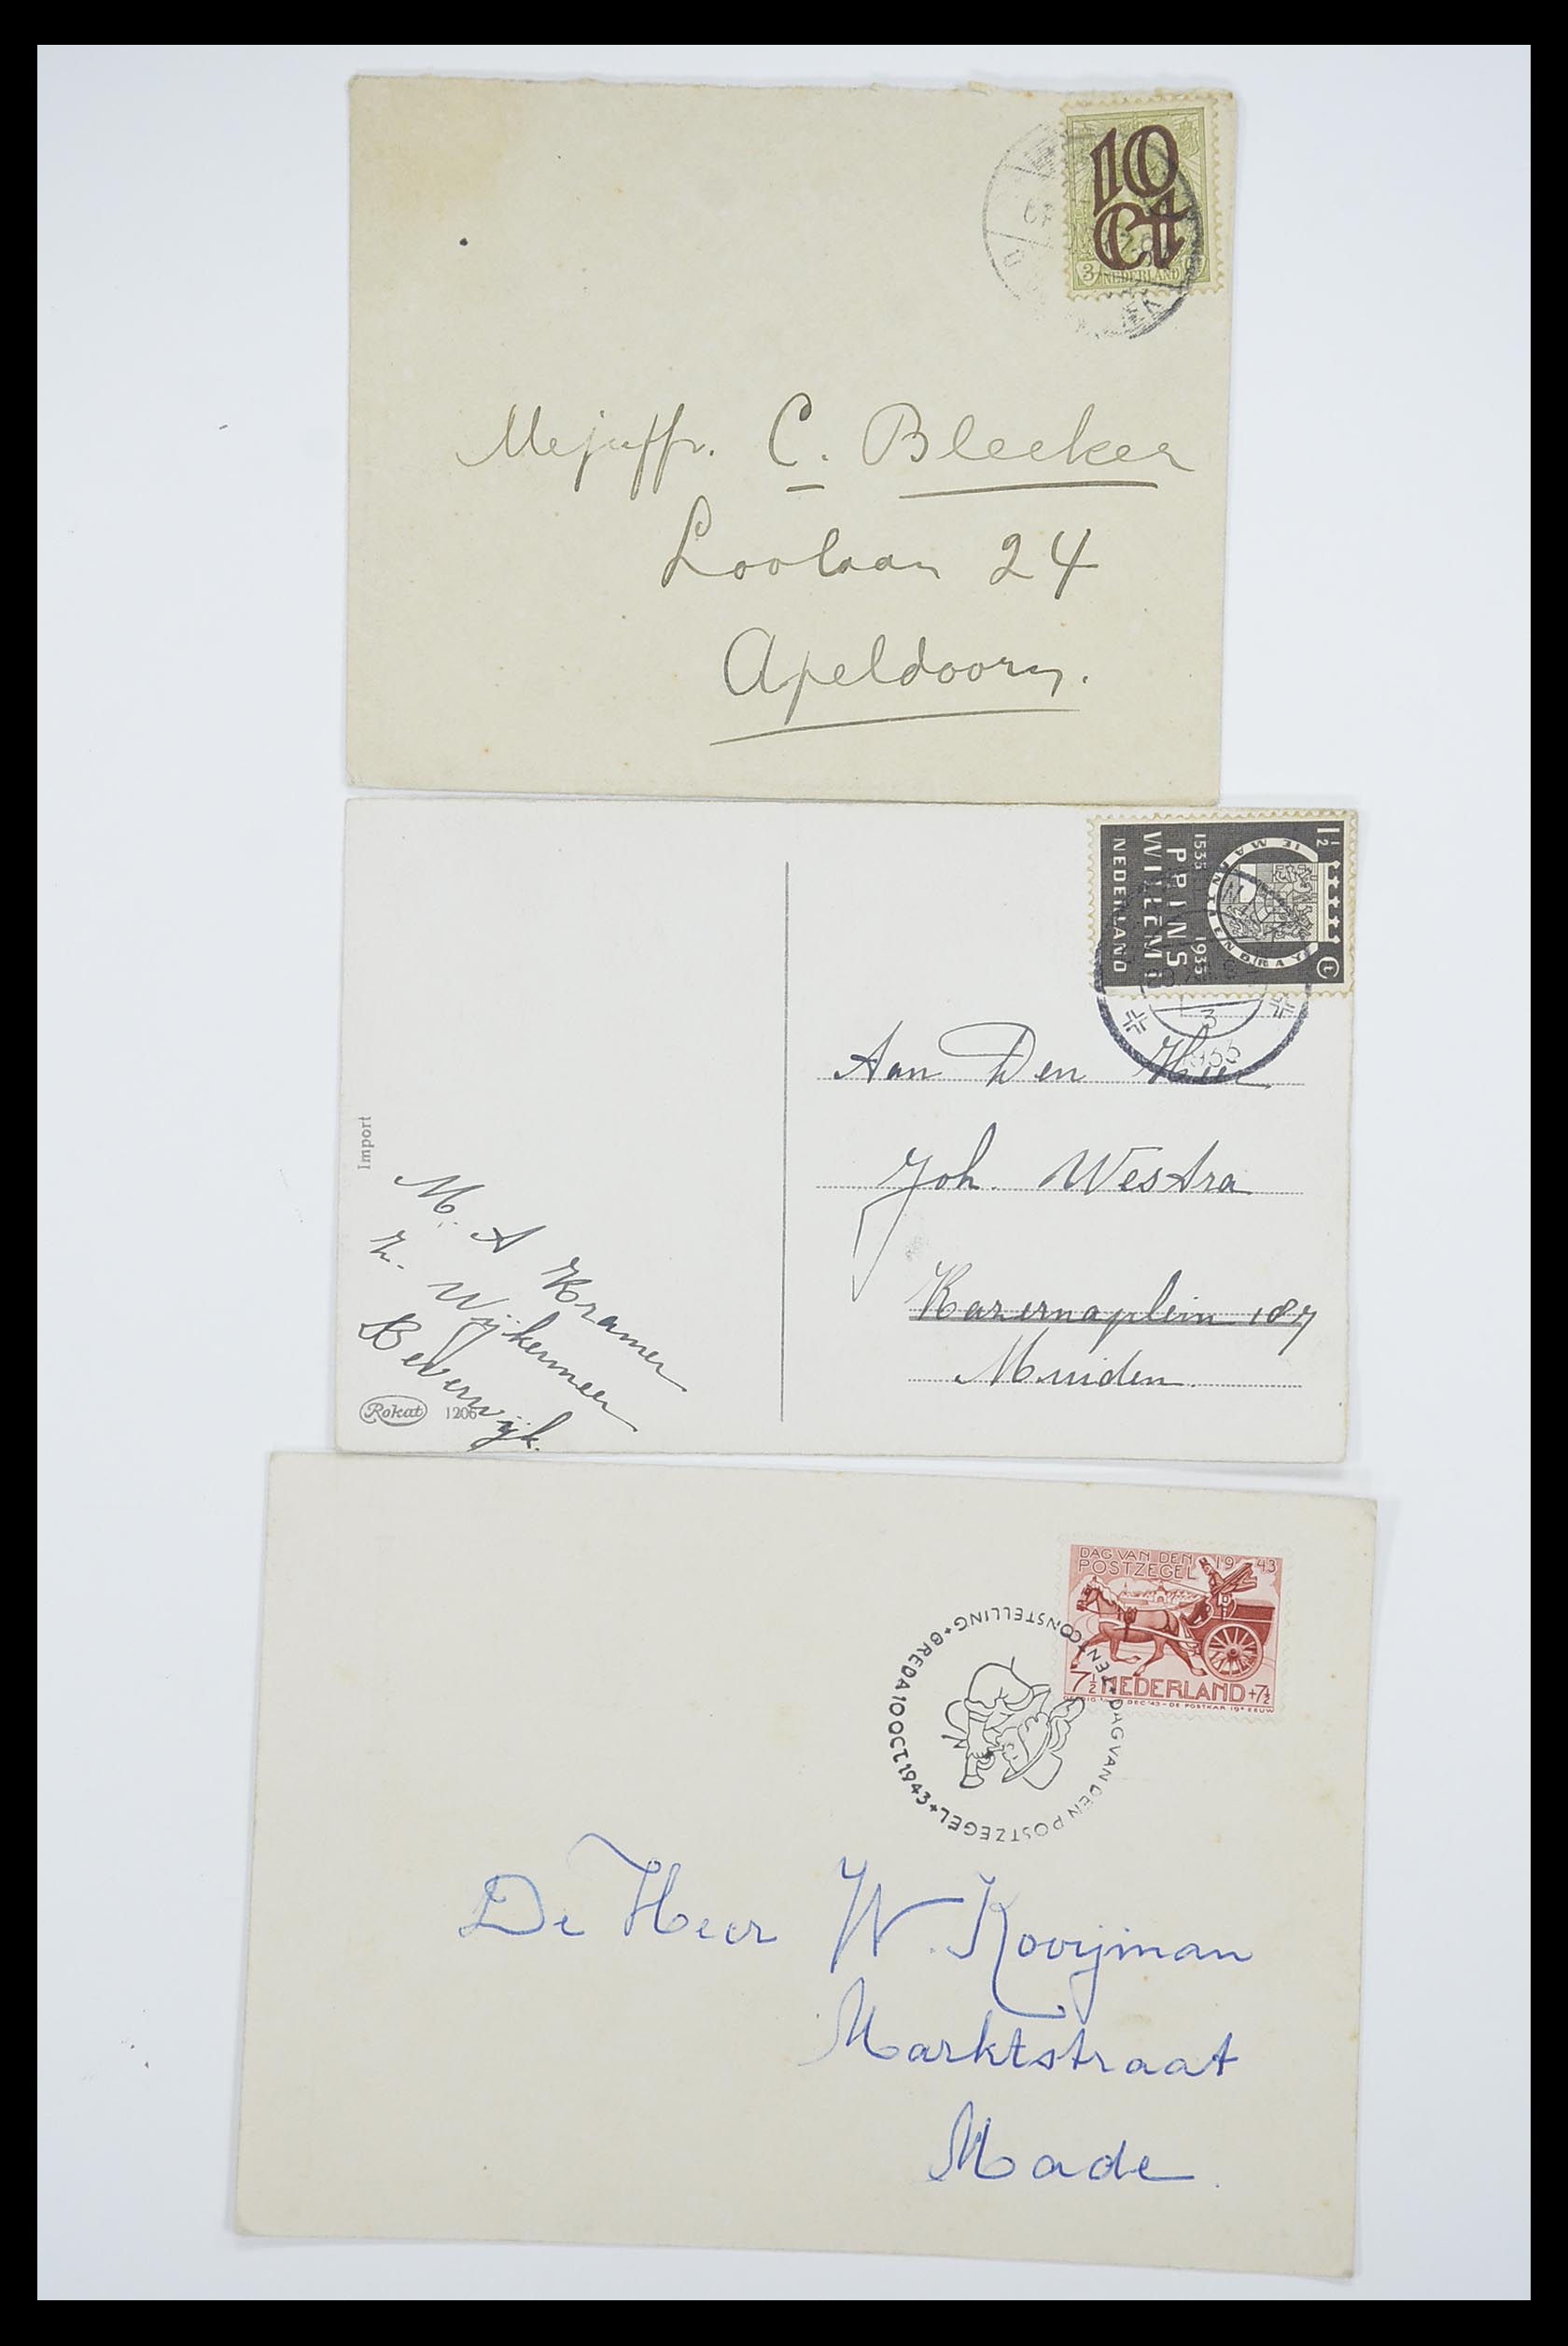 10
Ct
NEDERLAND
Mejuffr. C. Bleeker
Loolaan 24
Apeldoorn.
1½ Ct
1533 1933
PRINS
WILLEM I
NEDERLAND
JE MAINTIENDRAY
3
1933
Aan Den Heer
Joh. Westra
Kazerneplein 187
Muiden.
Import
M. A Kramer
Z. Wijkermeer
Beverwijk.
Rokat 1206
DAG VAN DEN 19 43
POSTZEGEL
7½ NEDERLAND +7½
DEC '43 - DE POSTKAR 19e EEUW
BREDA 10 OCT 1943 + DAG VAN DEN POSTZEGEL + TENTOONSTELLING +
De Heer W. Kooijman
Marktstraat
Made.